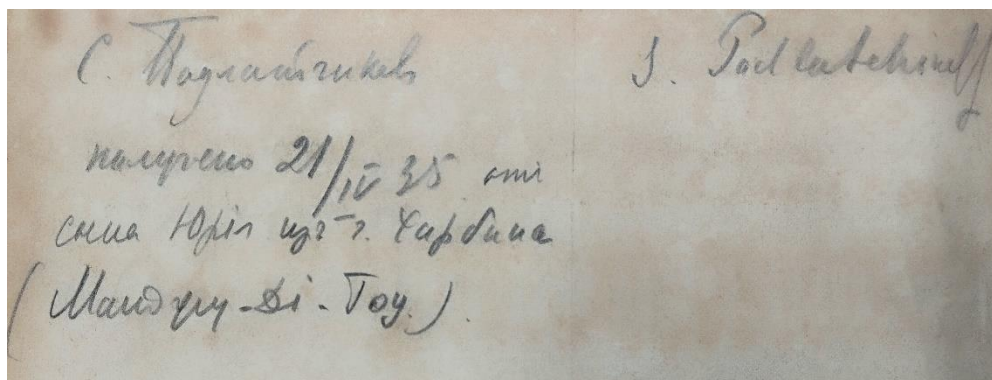 С. Подлатчиковъ S. Podlatchikoff
получено 21/IV 35 отъ
сына Юрія изъ г. Харбина
(Манджу-Ди-Го.)